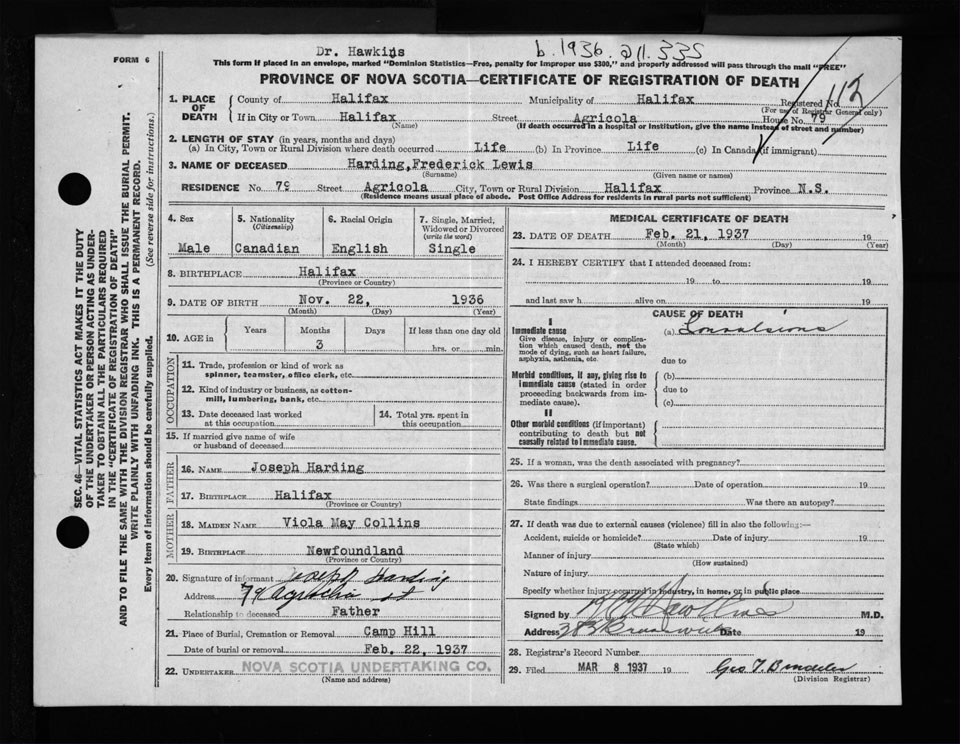 Dr. Hawkins
b. 1936. @11. 335
FORM 6
This form if placed in an envelope, marked "Dominion Statistics—Free, penalty for improper use $300," and properly addressed will pass through the mail "FREE"
PROVINCE OF NOVA SCOTIA—CERTIFICATE OF REGISTRATION OF DEATH
1. PLACE OF DEATH
County of Halifax Municipality of Halifax Registered No. 112
(For use of Registrar General only)
If in City or Town Halifax Street Agricola House No. 79
(Name) (If death occurred in a hospital or institution, give the name instead of street and number)
2. LENGTH OF STAY (in years, months and days)
(a) In City, Town or Rural Division where death occurred Life (b) In Province Life (c) In Canada (if immigrant)
3. NAME OF DECEASED Harding, Frederick Lewis
(Surname) (Given name or names)
RESIDENCE No. 79 Street Agricola City, Town or Rural Division Halifax Province N.S.
(Residence means usual place of abode. Post Office Address for residents in rural parts not sufficient)
4. Sex
Male
5. Nationality
(Citizenship)
Canadian
6. Racial Origin
English
7. Single, Married, Widowed or Divorced
(write the word)
Single
8. BIRTHPLACE Halifax
(Province or Country)
9. DATE OF BIRTH Nov. 22, 1936
(Month) (Day) (Year)
10. AGE in
Years Months Days If less than one day old
3 hrs. or min.
OCCUPATION
11. Trade, profession or kind of work as spinner, teamster, office clerk, etc.
12. Kind of industry or business, as cotton-mill, lumbering, bank, etc.
13. Date deceased last worked at this occupation
14. Total yrs. spent in this occupation
15. If married give name of wife or husband of deceased
FATHER
16. NAME Joseph Harding
17. BIRTHPLACE Halifax
(Province or Country)
MOTHER
18. MAIDEN NAME Viola May Collins
19. BIRTHPLACE Newfoundland
(Province or Country)
20. Signature of informant Joseph Harding
Address 79 Agricola St
Relationship to deceased Father
21. Place of Burial, Cremation or Removal Camp Hill
Date of burial or removal Feb. 22, 1937
22. UNDERTAKER NOVA SCOTIA UNDERTAKING CO.
(Name and address)
MEDICAL CERTIFICATE OF DEATH
23. DATE OF DEATH Feb. 21, 1937 19
(Month) (Day) (Year)
24. I HEREBY CERTIFY that I attended deceased from:
19 to 19
and last saw h alive on 19
CAUSE OF DEATH
I
Immediate cause
Give disease, injury or complication which caused death, not the mode of dying, such as heart failure, asphyxia, asthenia, etc.
(a) Convulsions
due to
Morbid conditions, if any, giving rise to immediate cause (stated in order proceeding backwards from immediate cause).
(b)
due to
(c)
II
Other morbid conditions (if important) contributing to death but not causally related to immediate cause.
25. If a woman, was the death associated with pregnancy?
26. Was there a surgical operation? Date of operation 19
State findings Was there an autopsy?
27. If death was due to external causes (violence) fill in also the following:—
Accident, suicide or homicide? Date of injury 19
(State which)
Manner of injury
(How sustained)
Nature of injury
Specify whether injury occurred in industry, in home, or in public place
Signed by Hawkins M.D.
Address 383 Brunswick Date 19
28. Registrar's Record Number
29. Filed MAR 8 1937 19
(Division Registrar)
SEC. 46—VITAL STATISTICS ACT MAKES IT THE DUTY
OF THE UNDERTAKER OR PERSON ACTING AS UNDER-
TAKER TO OBTAIN ALL THE PARTICULARS REQUIRED
IN THE "CERTIFICATE OF REGISTRATION OF DEATH"
AND TO FILE THE SAME WITH THE DIVISION REGISTRAR WHO SHALL ISSUE THE BURIAL PERMIT.
WRITE PLAINLY WITH UNFADING INK. THIS IS A PERMANENT RECORD.
Every item of information should be carefully supplied. (See reverse side for instructions.)